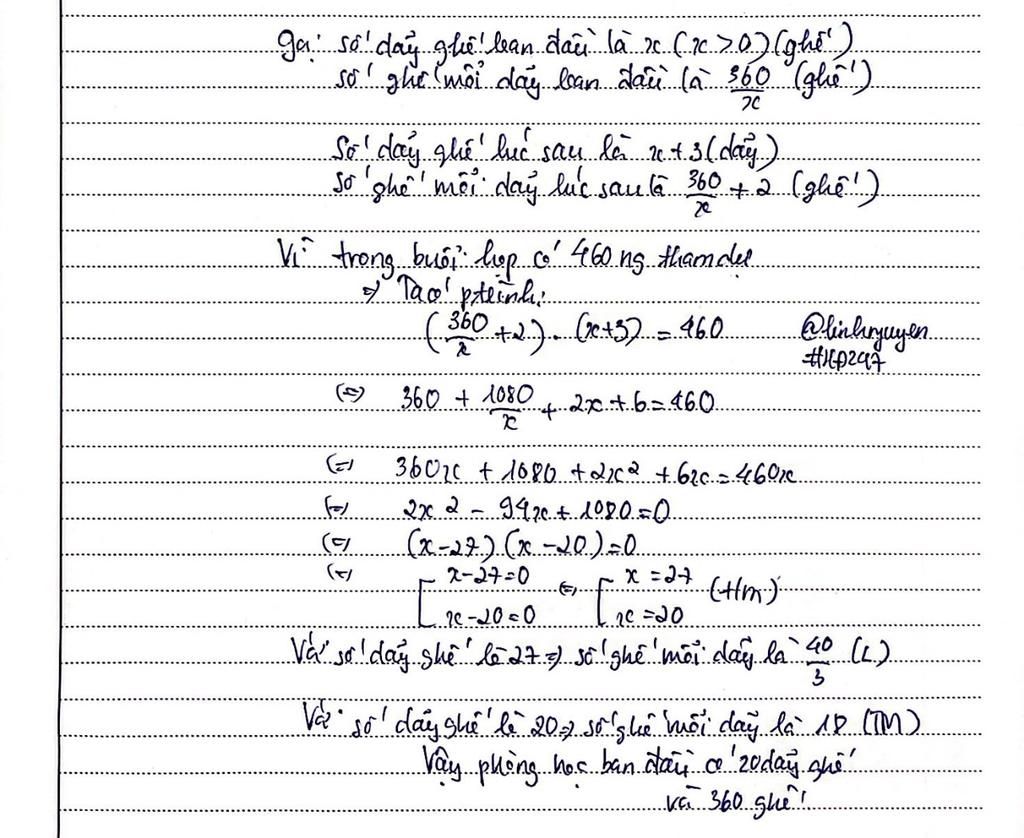 Gọi số dãy ghế ban đầu là x (x > 0) (ghế)
số ghế mỗi dãy ban đầu là 360/x (ghế)
Số dãy ghế lúc sau là x + 3 (dãy)
số ghế mỗi dãy lúc sau là 360/x + 2 (ghế)
Vì trong buổi họp có 460 ng tham dự
=> Ta có ptrình:
(360/x + 2) . (x+3) = 460
@linhnguyen
#HP297
(=) 360 + 1080/x + 2x + 6 = 460
(=) 360x + 1080 + 2x² + 6x = 460x
(=) 2x² - 94x + 1080 = 0
(=) (x-27) (x-20) = 0
(=) [ x-27=0 (=) [ x = 27 (t/m)
x-20=0 x = 20
Với số dãy ghế là 27 => số ghế mỗi dãy là 40/3 (L)
Với số dãy ghế là 20 => số ghế mỗi dãy là 18 (TM)
Vậy phòng học ban đầu có 20 dãy ghế
và 360 ghế